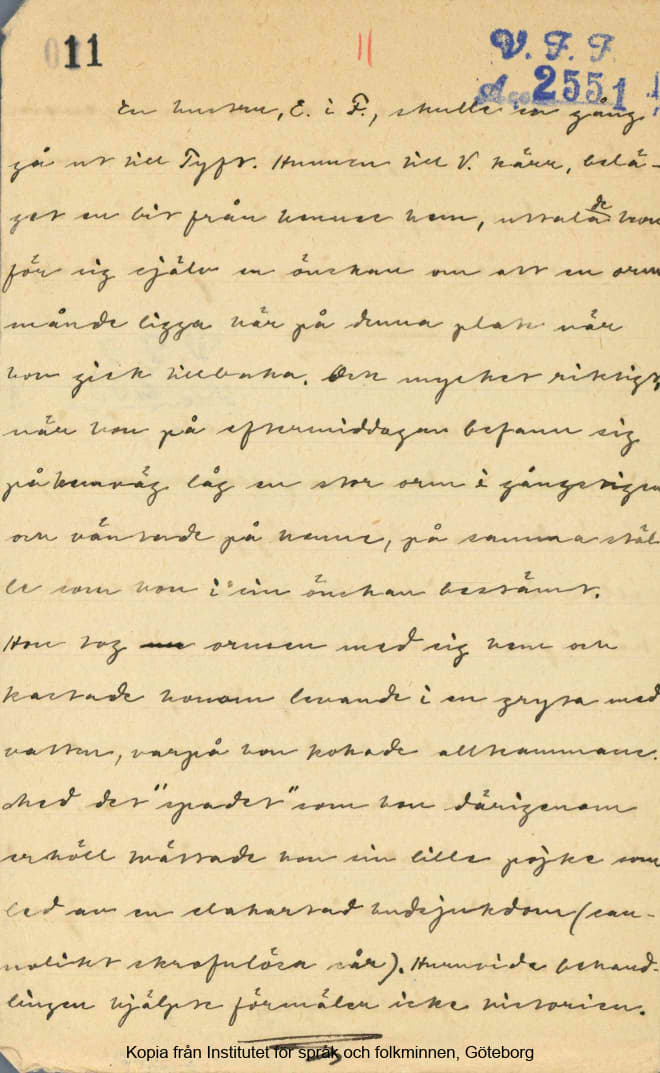 11
11
V. F. F.
A 2551
En hustru, E. i F., skulle en gång
gå ut till Tyft. Hunnen till V. kärr, belä-
get en bit från hennes hem, uttalade hon
för sig själv en önskan om att en orm
månde ligga här på denna plats när
hon gick tillbaka. Och mycket riktigt,
när hon på eftermiddagen befann sig
på hemväg låg en stor orm i gångstigen
och väntade på henne, på samma stäl-
le som hon i sin önskan bestämt.
Hon tog ormen med sig hem och
kastade honom levande i en gryta med
vatten, varpå hon kokade alltsammans.
Med det "spadet" som hon därigenom
erhöll tvättade hon sin lille pojke som
led av en elakartad hudsjukdom (san-
nolikt skrofulösa sår). Huruvida behand-
lingen hjälpte förmäler icke historien.
Kopia från Institutet för språk och folkminnen, Göteborg